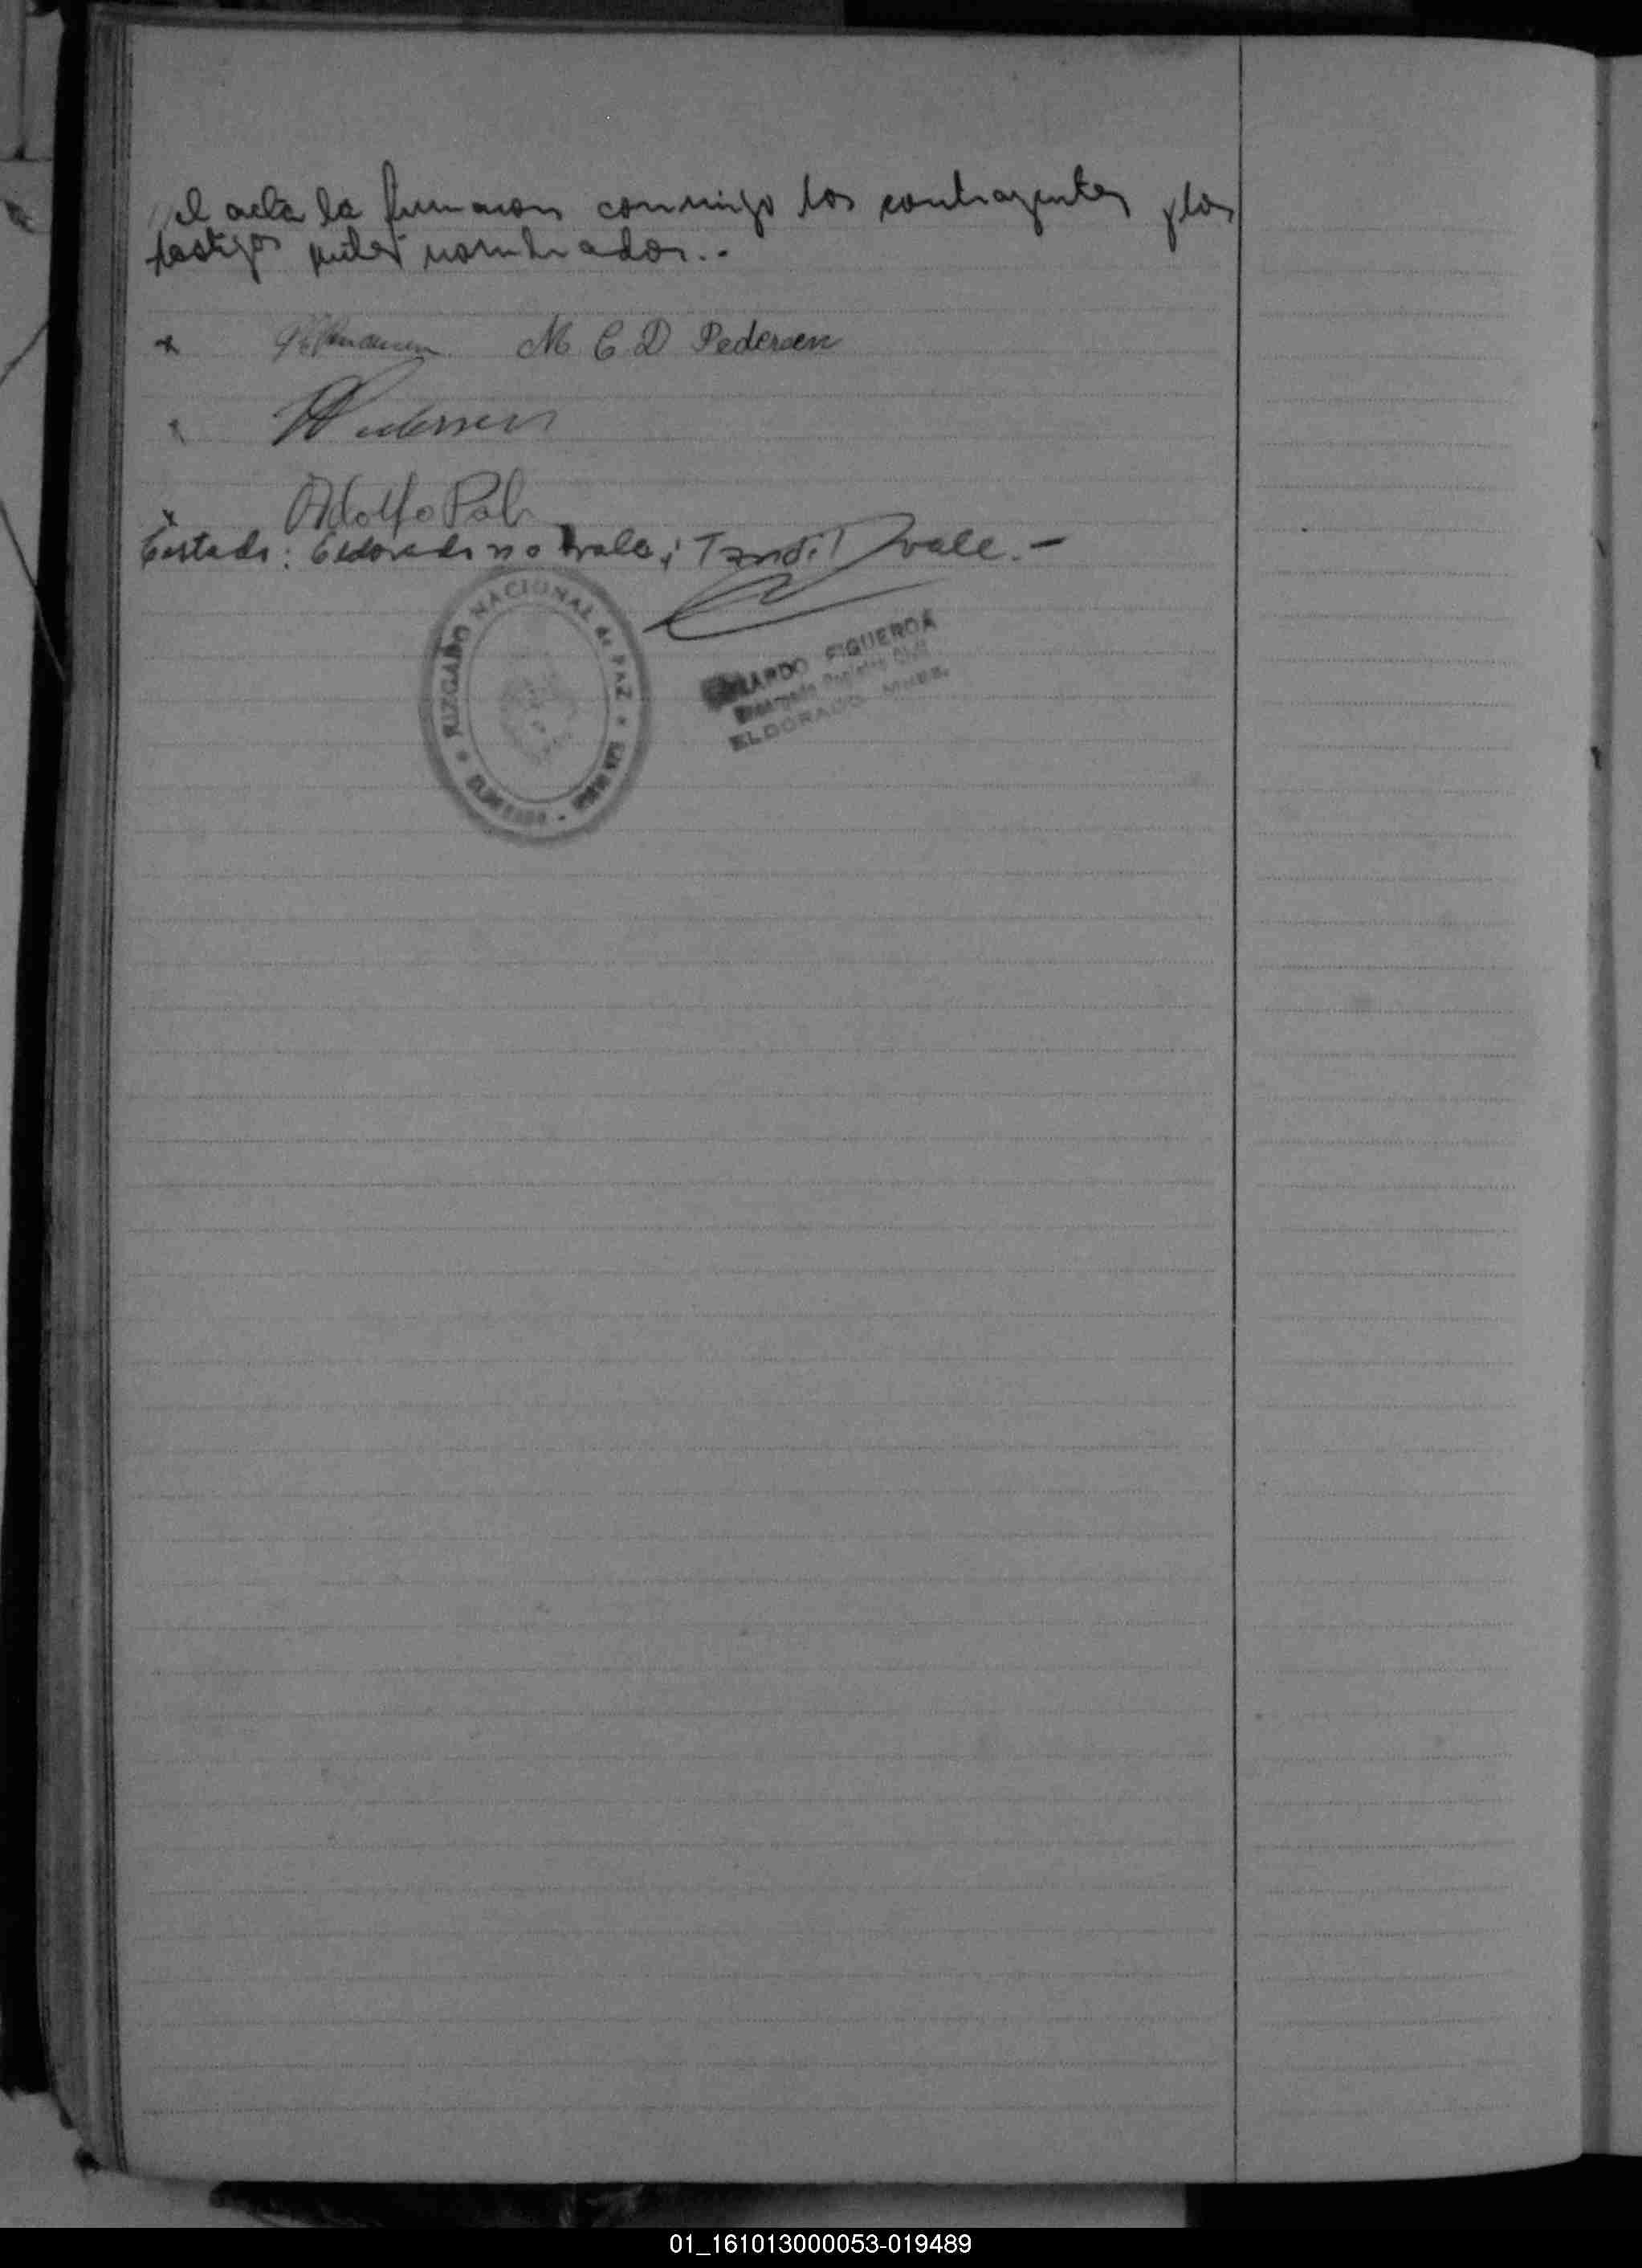 el acta la firmaron conmigo los contrayentes y los
testigos antes nombrados.-
M C D Pedersen
Pedersen
Adolfo Pab
Testado: Eldorado no vale; Tandil vale.-
JUZGADO NACIONAL de PAZ
ELDORADO - MISIONES
FIGUEROA
Encargado Registro Civil
ELDORADO MNES.
01_161013000053-019489